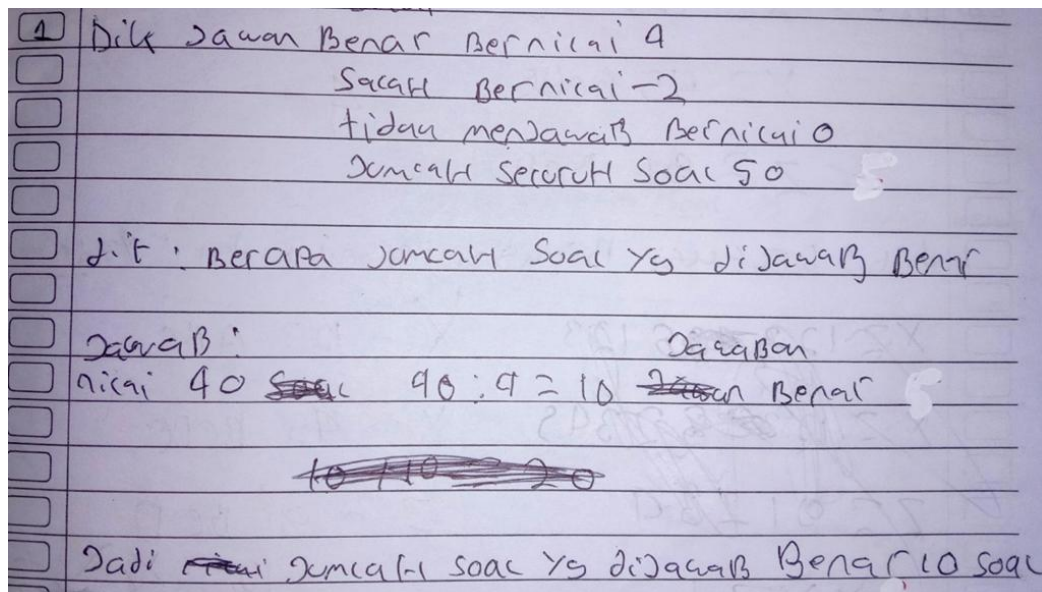 1 Dik Jawan Benar Bernilai 4
Salah Bernilai -2
tidak menjawab Bernilai 0
Jumlah Seluruh Soal 50
dit : Berapa Jumlah Soal yg diJawab Benar
Jawab : Jawaban
nilai 40 40 : 4 = 10 Benar
10 + 10 = 20
Jadi Jumlah soal yg diJawab Benar 10 soal